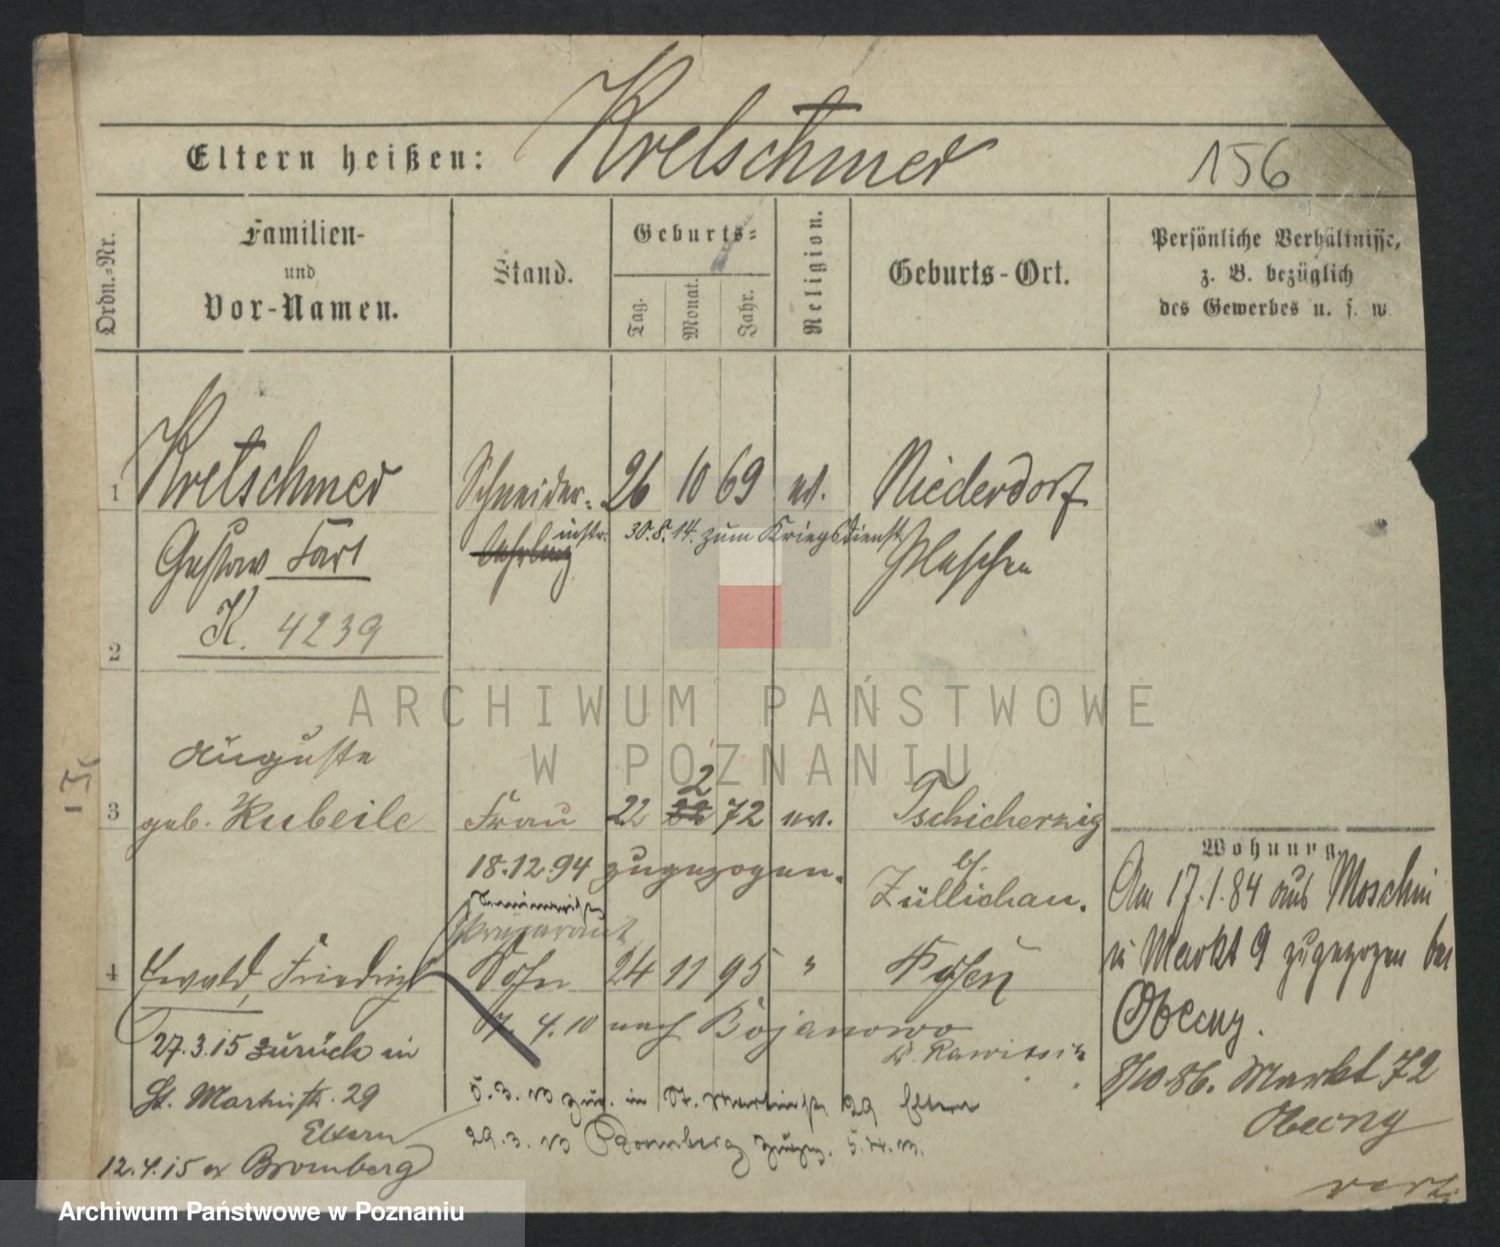 Eltern heißen: Kretschmer 156
Ordn.-Nr.
Familien-
und
Vor-Namen.
Stand.
Geburts-
Tag.
Monat.
Jahr.
Religion.
Geburts-Ort.
Persönliche Verhältnisse,
z. B. bezüglich
des Gewerbes u. s. w.
1 Kretschmer Schneider- 26 10 69 ev. Niederdorf
Gustav Karl Lehrling 30.8.14. zum Kriegsdienst
K. 4239
2
Auguste
3 geb. Kubeile Frau 22 2 72 ev. Tschicherzig
b/.
18.12.94 zugezogen. Züllichau.
Präparant
4 Ewald, Friedrich Sohn 24 11 95 " Posen
4.10 nach Bojanowo
Kr. Rawitsch
27.3.15 zurück in
St. Martinstr. 29
Eltern
12.4.15 Bromberg
5.3.13 zug. in St. Martinstr. 29 Eltern
29.3.13 Bromberg
Wohnung.
Am 17.1.84 aus Moschin
in Markt 9 zugezogen bei
8/10 86. Markt 72
ARCHIWUM PAŃSTWOWE
W POZNANIU
Archiwum Państwowe w Poznaniu